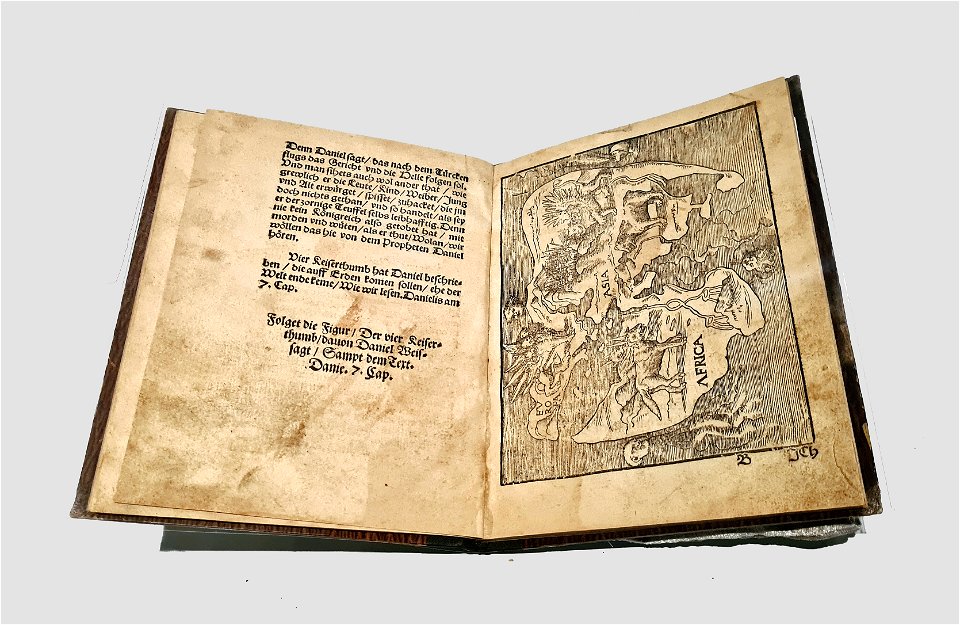 Denn Daniel sagt / das nach dem Türcken
flugs das Gericht vnd die Helle folgen sol.
Vnd man sihets auch wol an der that / wie
grewlich er die Leute / Kind / Weiber / Jung
vnd Alt erwürget / spisset / zuhacket / die jm
doch nichts gethan / vnd so handelt / als sey
er der zornige Teuffel selbs leibhafftig. Denn
nie kein Königreich also getobet hat / mit
morden vnd wüten / als er thut / Wolan / wir
wöllen das hie von dem Propheten Daniel
hören.
Vier Keiserthumb hat Daniel beschrie-
ben / die auff Erden komen sollen / ehe der
Welt ende keme / Wie wir lesen. Danielis am
7. Cap.
Folget die Figur / Der vier Keiser-
thumb / dauon Daniel Weis-
sagt / Sampt dem Text.
Danie. 7. Cap.
ASIA
EV
RO
PA
AFRICA
B
Jch